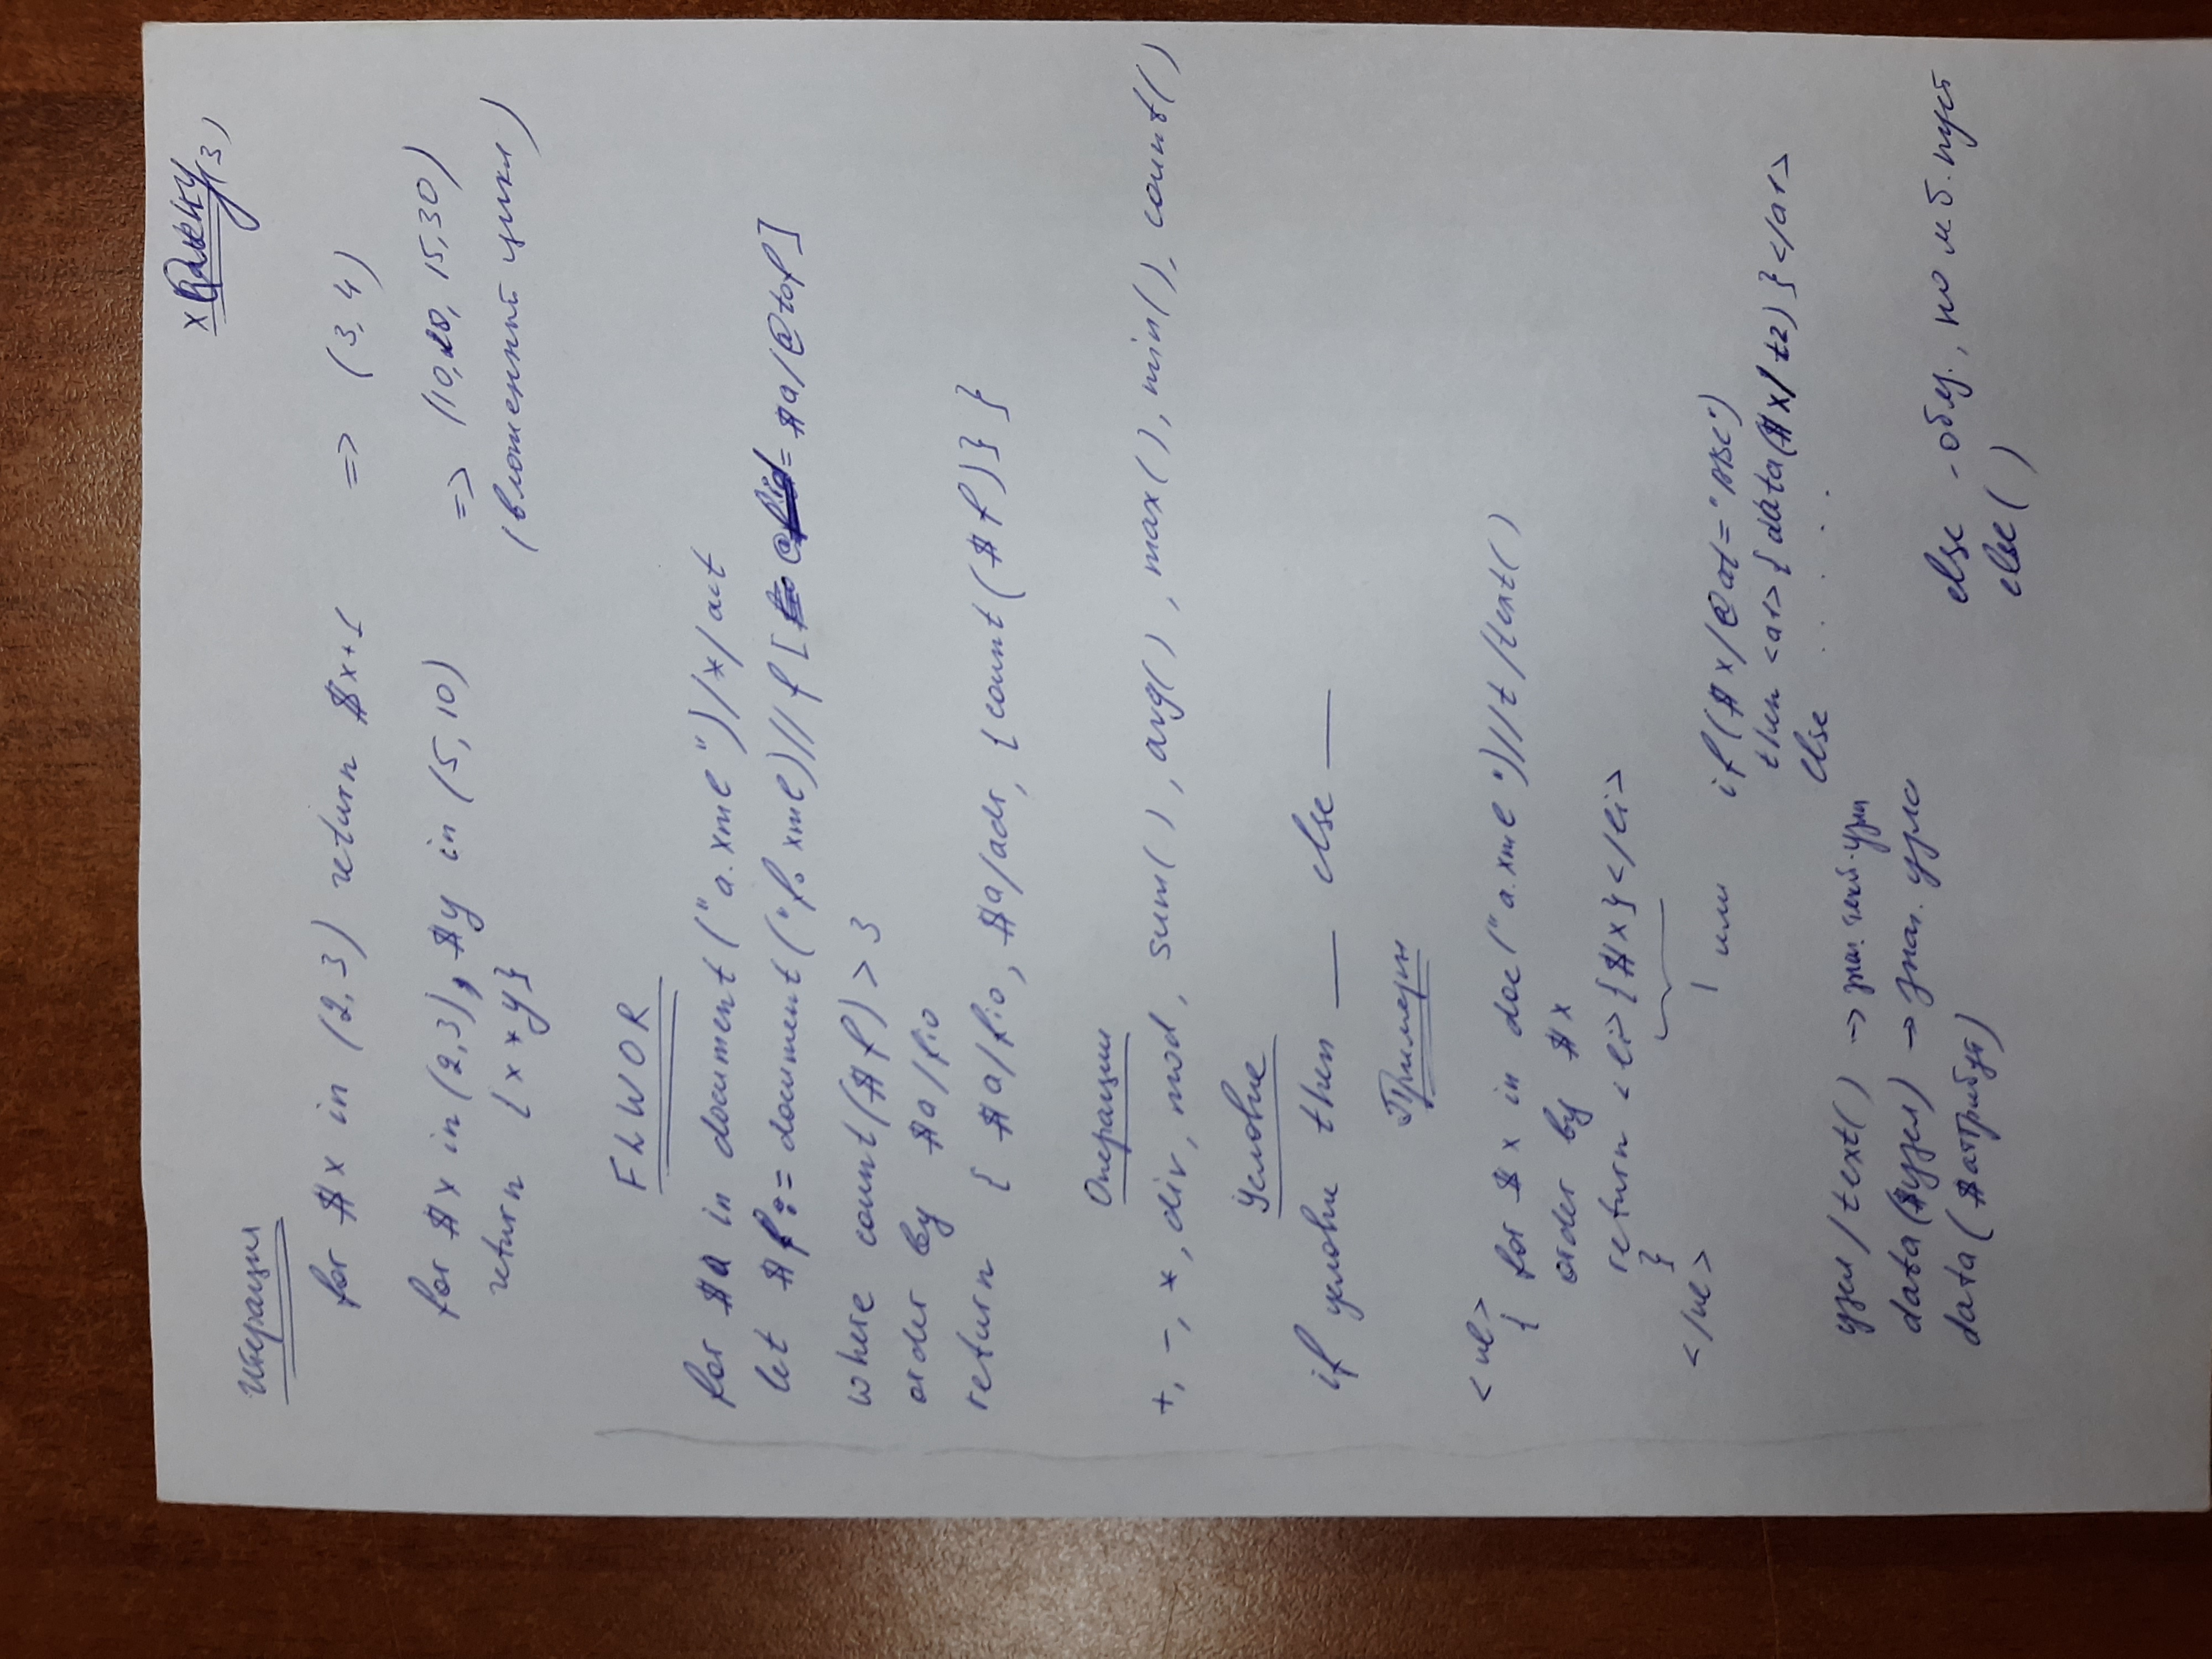 xQuery (3)
Итерация
for $x in (2,3) return $x+1 => (3,4)
for $x in (2,3), $y in (5,10) => (10,20, 15,30)
return {x*y} (вложенный цикл)
FLWOR
for $a in document("a.xml")/*/act
let $f:= document("f.xml)//f[@fid= $a/@tof]
where count($f) > 3
order by $a/fio
return { $a/fio, $a/adr, {count($f)} }
Операции
+, -, *, div, mod, sum(), avg(), max(), min(), count()
Условие
if условие then ___ else ___
Примеры
<ul>
{ for $x in doc("a.xml")//t/text()
order by $x
return <li>{$x}</li>
}
</ul>
или if($x/@at="ABC")
then <a1>{data($x/t2)}</a1>
else ......
узел/text() -> знач. текст. узла
data($узел) -> знач. узла
data($аттрибут)
else - обяз., но м.б. пуст
else()